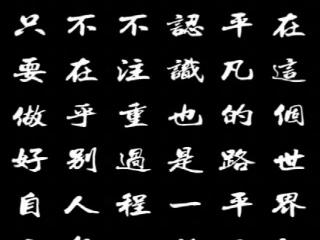 在這個世界
平凡的路平
認識也是一
不注重過程
不在乎别人
只要做好自